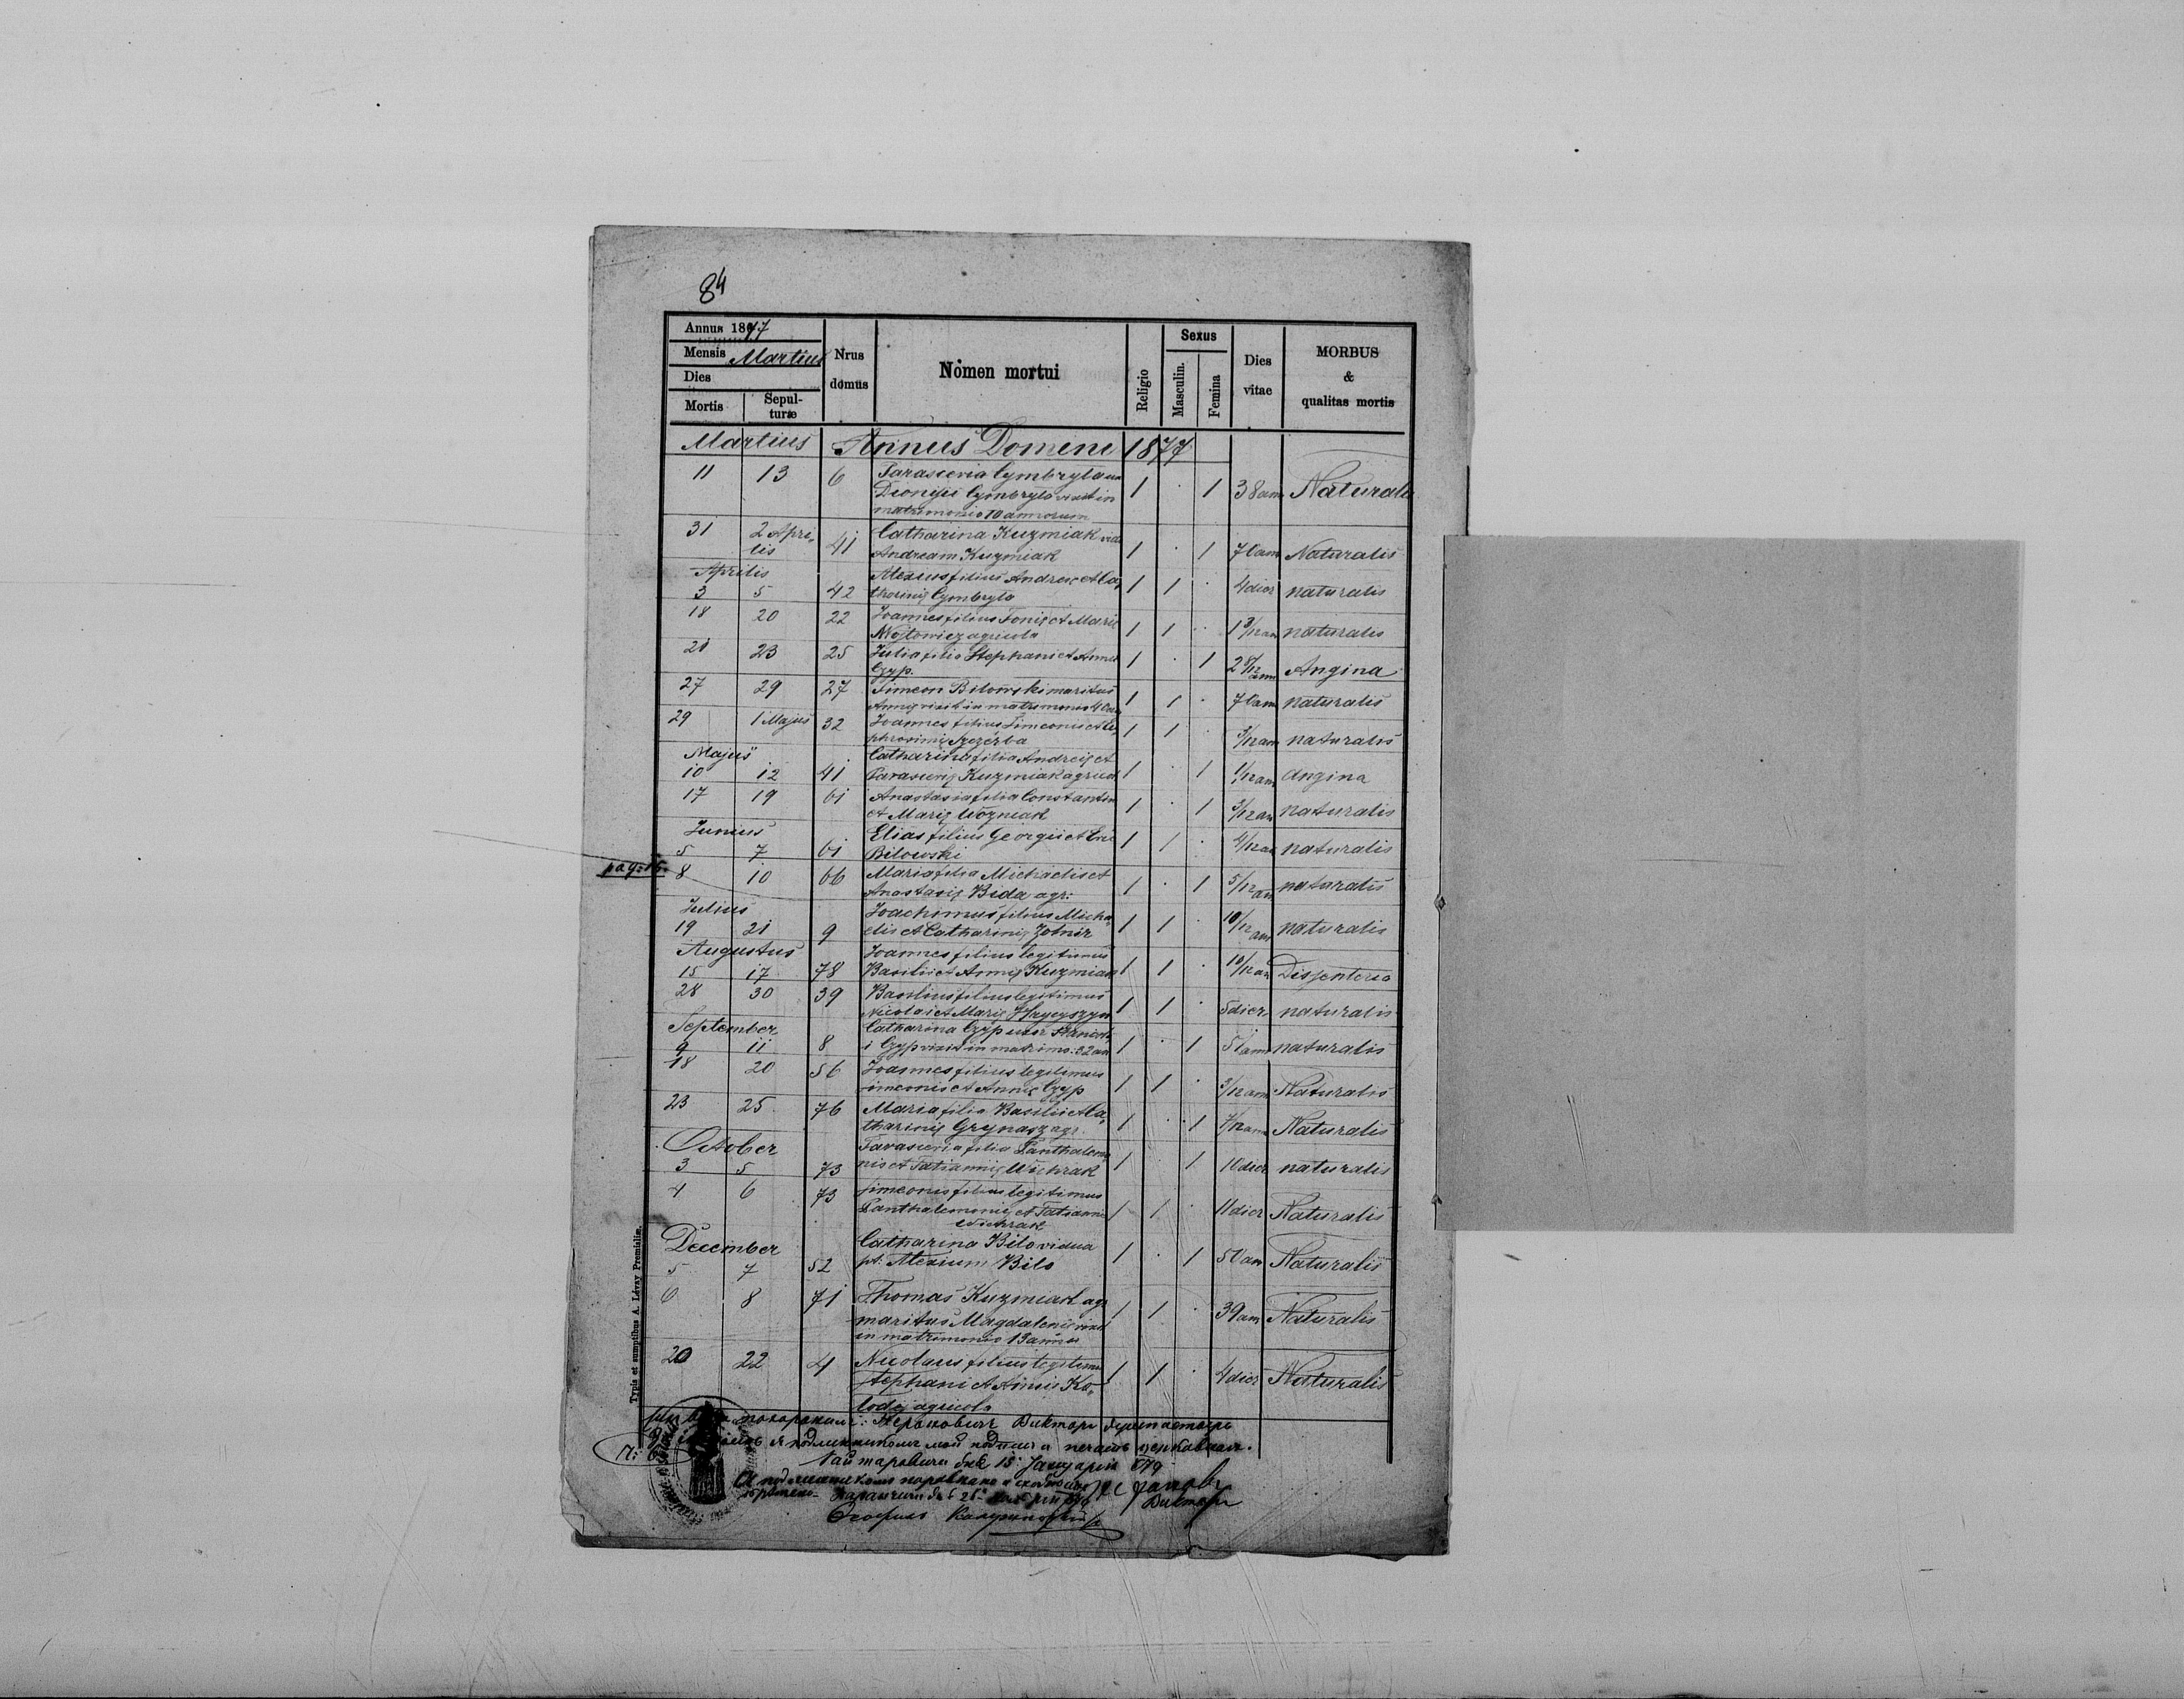 84
Annus 1877
Mensis Martius
Dies
Mortis Sepulturæ
Nrus domus
Nomen mortui
Religio
Sexus
Masculin.
Femina
Dies vitae
MORBUS & qualitas mortis
Martius Annus Domini 1877
11 13 6 Parascevia Cymbryla
Dionysii Cymbryla vixit in 1 · 1 38 ann Naturalis
matrimonio 10 annorum
31 2 Aprilis 41 Catharina Kuzmiak vid
Andream Kuzmiak 1 · 1 70 ann Naturalis
Aprilis
3 5 42 Alexius filius Andreæ et Ca,
tharinę Cymbryla 1 1 · 4 dier naturalis
18 20 22 Joannes filius et Marię
Wojtowicz agricola 1 1 · 1 3/12 ann naturalis
21 23 25 Julia filia Stephani et Annæ
Czyp. 1 · 1 2 ann Angina
27 29 27 Simeon Bilowski maritus
Annę vixit in matrimonio 1 1 · 70 ann naturalis
29 1 Majus 32 Joannes filius Simeonis et Eu,
phrosinię Szczerba 1 1 · 3/12 ann naturalis
Majus
10 12 41 Catharina filia Andreę et
Parascevię Kuzmiak agricol 1 · 1 1/12 ann Angina
17 19 61 Anastasia filia Constantin
et Marię Wozniak 1 · 1 3/12 ann naturalis
Junius
5 7 61 Elias filius Georgii et
Bilowski 1 1 · 4/12 ann naturalis
pag: 15.
8 10 66 Maria filia Michaelis et
Anastasię Bida agr: 1 · 1 5/12 ann naturalis
Julius
19 21 9 Joachimus filius Micha,
elis et Catharinę Zolnir 1 1 · 10/12 ann naturalis
Augustus
15 17 78 Joannes filius legitimus
Basilii et Annę Kuzmiak 1 1 · 10/12 ann Dissenteria
28 30 39 Basilius filius legitimus
Nicolai et Marię 1 1 · 5 dier naturalis
September
9 11 8 Catharina Czyp uxor
i Czyp vixit in matrimo: 32 ann 1 · 1 51 ann naturalis
18 20 56 Joannes filius legitimus
Simeonis et Annę Czyp 1 1 · 3/12 ann Naturalis
23 25 76 Maria filia Basilii et Ca,
tharinę Grynasz agr. 1 · 1 7/12 ann Naturalis
October
3 5 73 Parascevia filia Panthalemo
nis et Tatiannię Wichrak 1 · 1 10 dier naturalis
4 6 73 Simeonis filius legitimus
Panthalemonis et Tatianne 1 1 · 11 dier Naturalis
Wichrak
December
5 7 52 Catharina Bilo vidua
pt: Alexium Bilo 1 · 1 50 ann Naturalis
6 8 71 Thomas Kuzmiak agr
maritus Magdalenę vixit 1 1 · 39 ann Naturalis
in matrimonio 13 annis
20 22 4 Nicolaus filius legitimus
Stephani et Annis Ko, 1 1 · 4 dier Naturalis
lodej agricola
Typis et sumptibus A. Lévay Premisliæ.
Викторъ
печать церковная.
дня 15 Януарія 879
Викторъ
Теофилъ